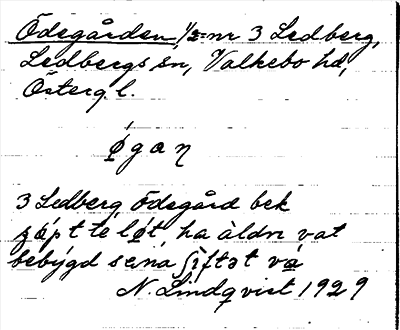 Ödegården, 1/2 nr 3 Ledberg,
Ledbergs sn, Valkebo hd,
Österg l.
øgaɳ
3 Ledberg Ödegård bek
te løt, ha àldrı vat
bebýgd sєná ʃıftət va
N. Lindqvist 1929